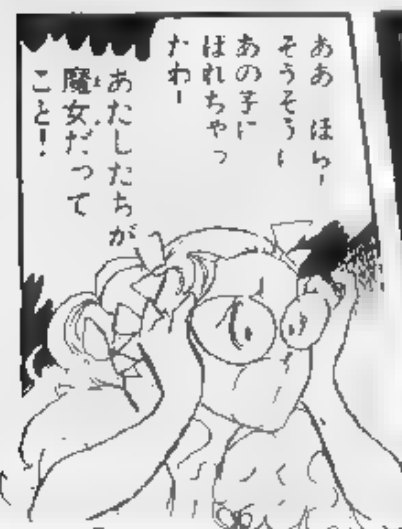 ああ ほらー
そうそう!
あの子に
ほれちゃっ
たわー
あたしたちが
魔女だって
こと!